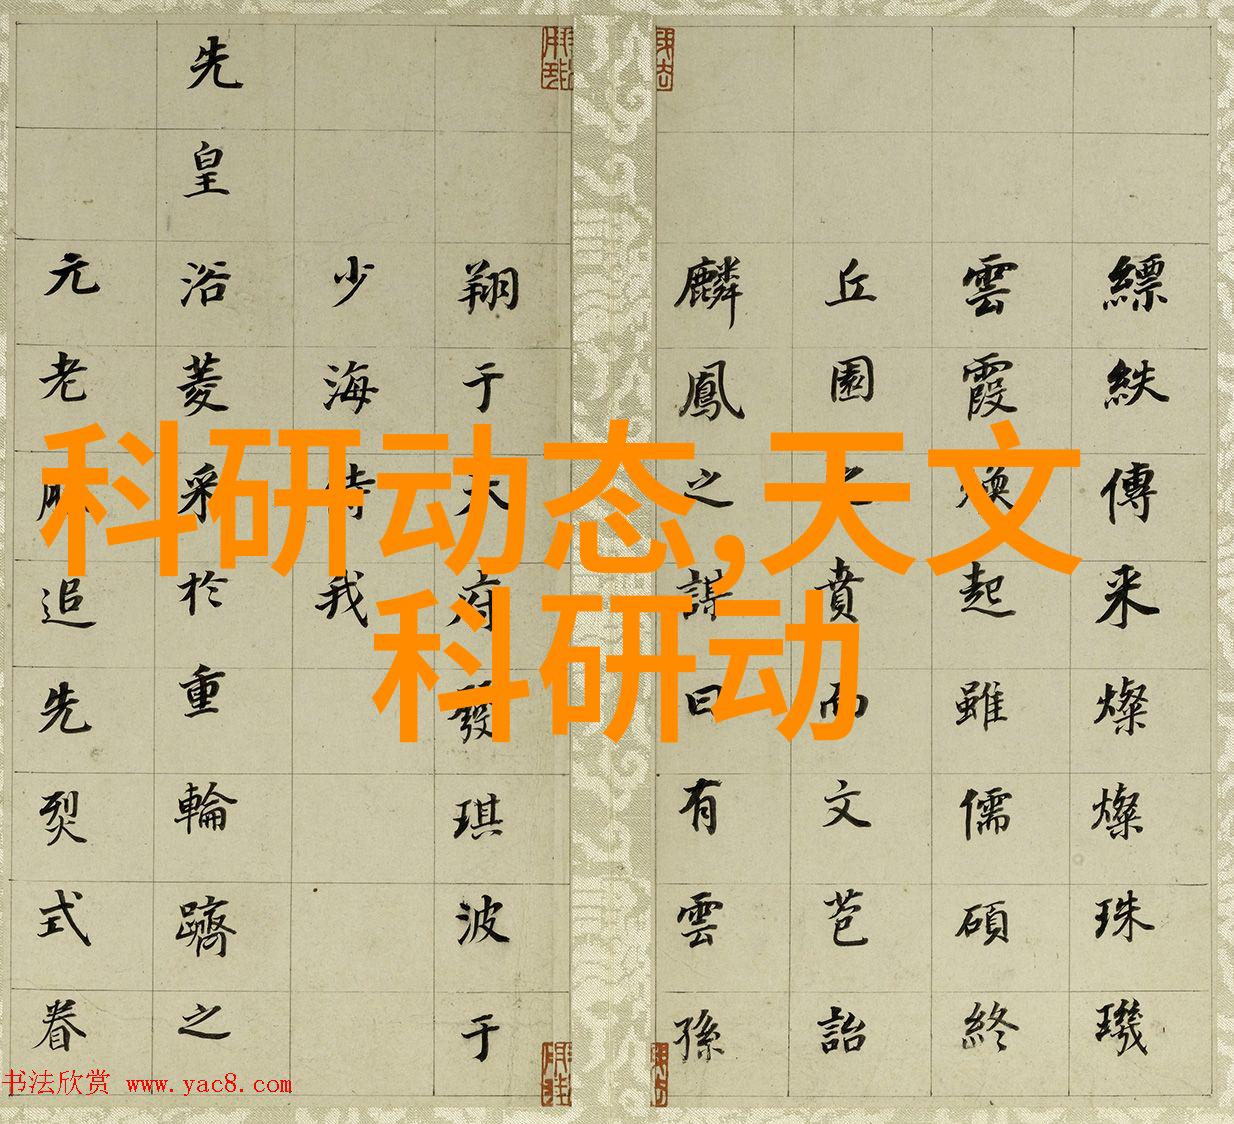 科研动态,天文
科研动
縹紩傳来燦燦珠璣
雲霞煥起雖儒碩終
丘園之賁而文芭詒
麟鳳之謀曰有雲孫
翔于天府發琪波于
少海侍我
先皇浴菱采於重輪躋之
元老追先烈式眷
书法欣赏 www.yac8.com